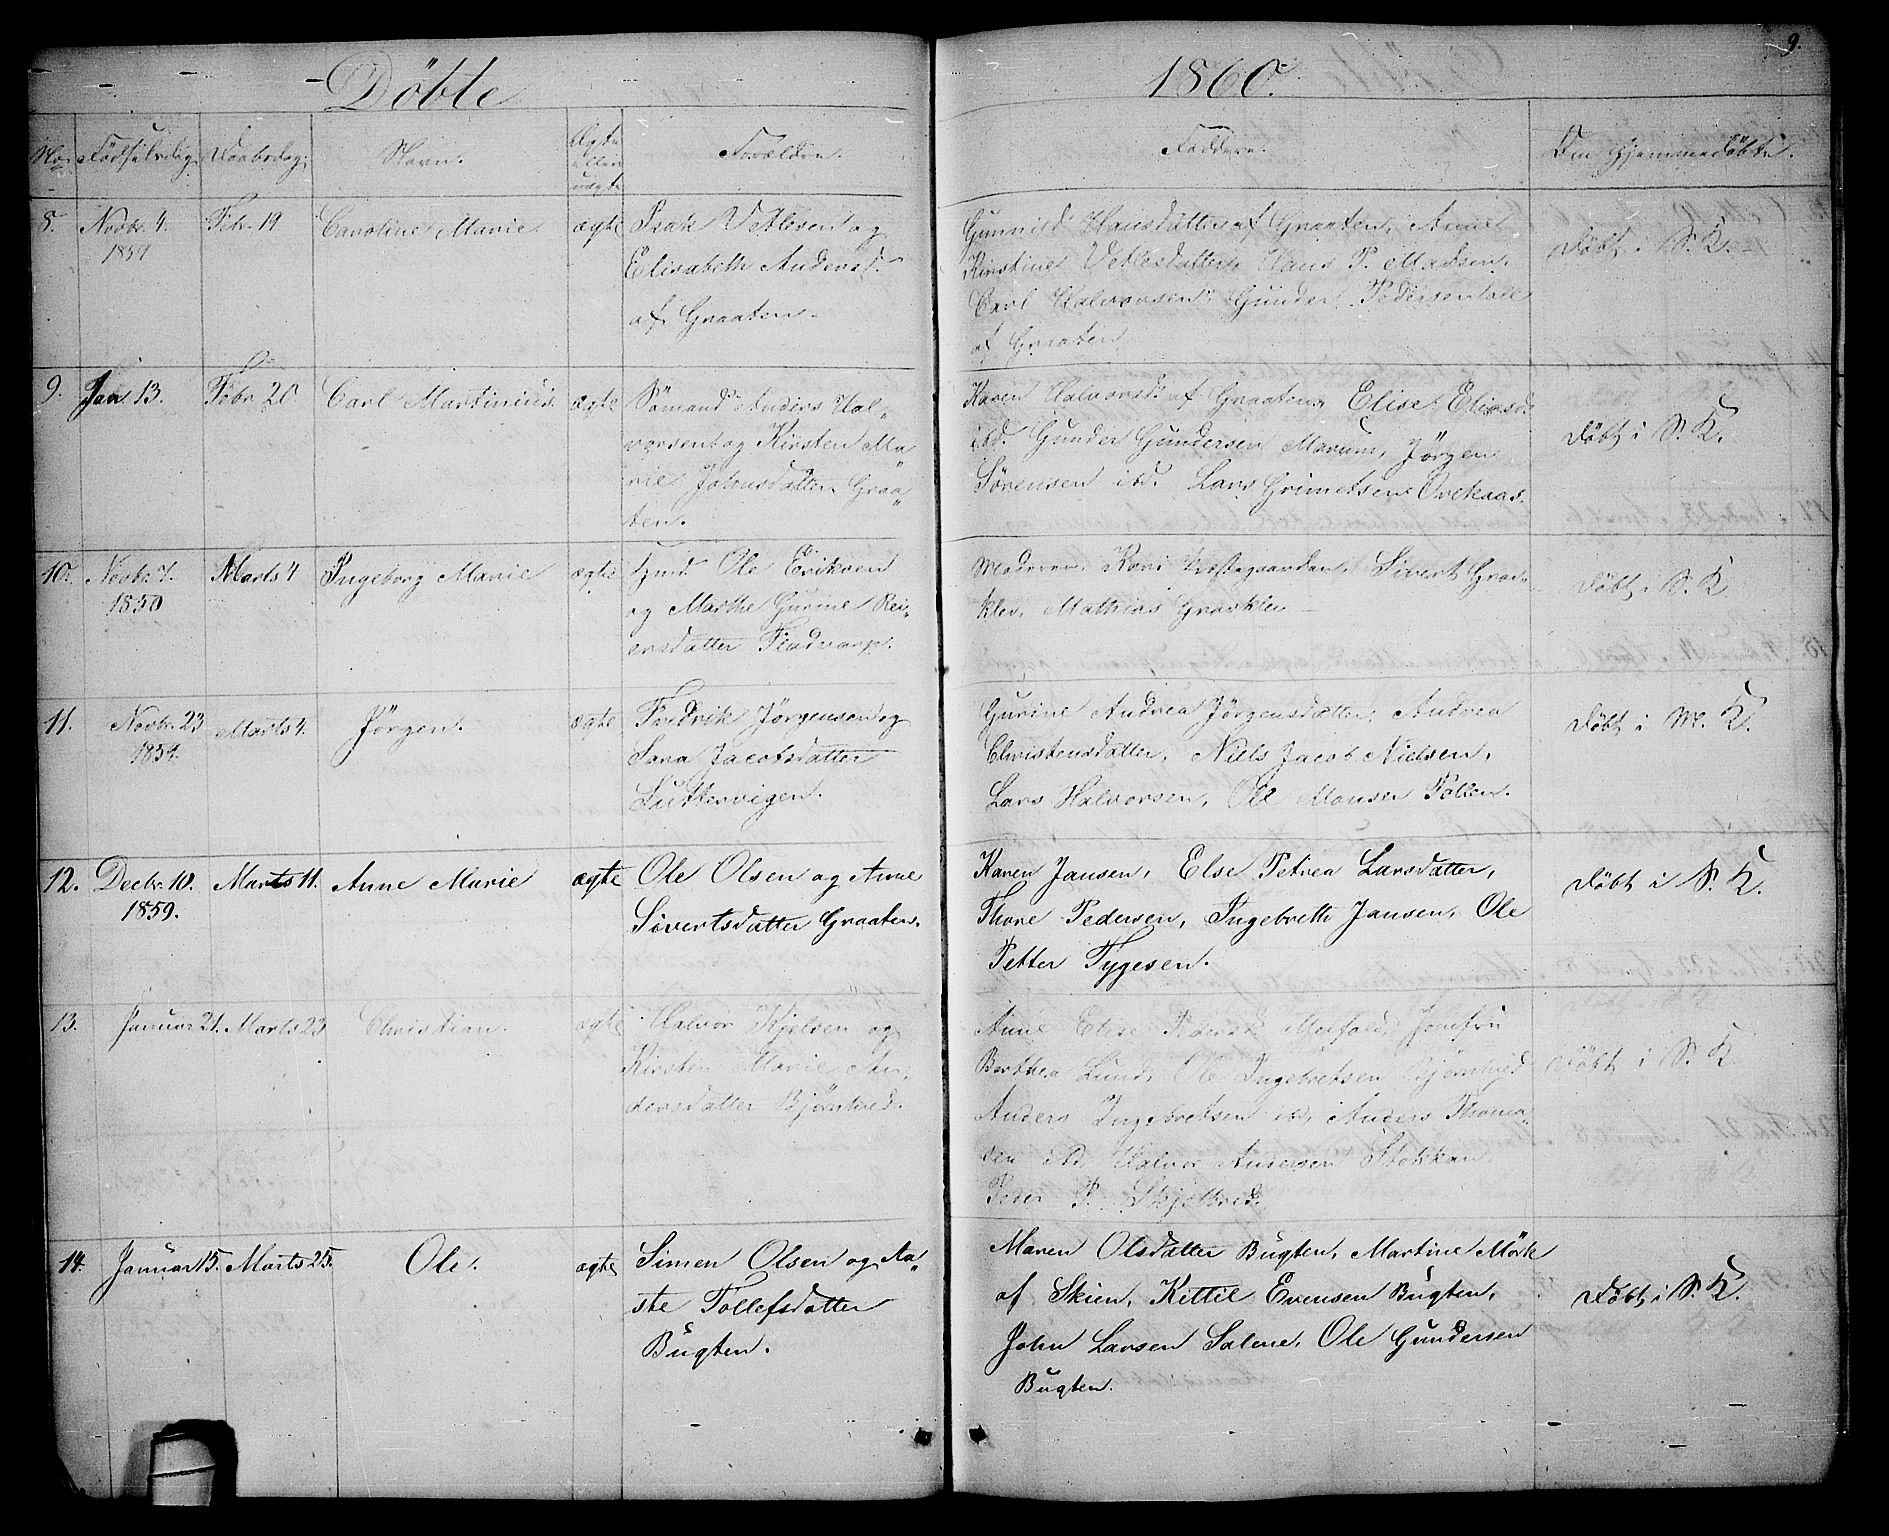 9.
Döbte
1860.
No. Födselsdag. Daabsdag. Navn. Ægte eller uægte Forældre. Faddere. Om hjemmedöbt.
8. Novbr. 4. 1859 Febr. 19 Caroline Marie ægte Isak Vetlesen og
Elisabeth Andersd.
af Graaten.
Gunnild Hansdatter af Graaten, Anne
Kirstine Vetlesdatter, Hans P. Madsen,
Carl Halvorsen, Gunder Pedersen alle
af Graaten
Döbt i S. K.
9. Jan. 13. Febr. 20 Carl Martinius. ægte Sömand Anders Hal„
vorsen og Kirsten Ma
rie Johnsdatter Graa„
ten.
Karen Halvorsd. af Graaten, Elise Eliasd.
ibd. Gunder Gundersen Marum, Jörgen
Sörensen ibd. Lars Grimetsen Övekaas.
Döbt i S. K.
10. Novbr. 7. 1850 Marts 4 Ingeborg Marie ægte Ole Eriksen
og Marthe Gurine Rei„
ersdatter
Moderen, Kari Sivert Grav„
klev, Mathias Gravklev
Döbt i S. K.
11. Novbr. 23 1859. Marts 4. Jörgen. ægte Fredrik Jörgensen og
Sara Jacobsdatter
Futtervigen.
Gurine Andrea Jörgensdatter, Andrea
Christensdatter, Niels Jacob Nielsen,
Lars Halvorsen, Ole Monsen Pollen.
Döbt i M. K.
12. Decbr. 10. 1859. Marts 11. Anne Marie ægte Ole Olsen og Anne
Sivertsdatter Graaten.
Karen Jansen, Else Petrea Larsdatter,
Thore Pedersen, Ingebreth Jansen, Ole
Petter Tygesen.
Döbt i S. K.
13. Januar 21. Marts 23 Christian. ægte Halvor Kjelsen og
Kirsten Marie An„
dersdatter Björntved.
Anne Elise Pedersd. Melfald, Jomfru
Berthea Lund, Ole Ingebretsen Björntved
Anders Ingebretsen ibd, Anders Thoma„
sen ibd, Halvor Andersen Stokkan,
Peder P. Skjeltved.
Döbt i S. K.
14. Januar 15. Marts 25. Ole. ægte Simen Olsen og Aa„
ste Tollefsdatter
Bugten.
Maren Olsdatter Bugten, Martine Mörk
af Skien, Kittil Evensen Bugten,
John Larsen Salene, Ole Gundersen
Bugten.
Döbt i S. K.